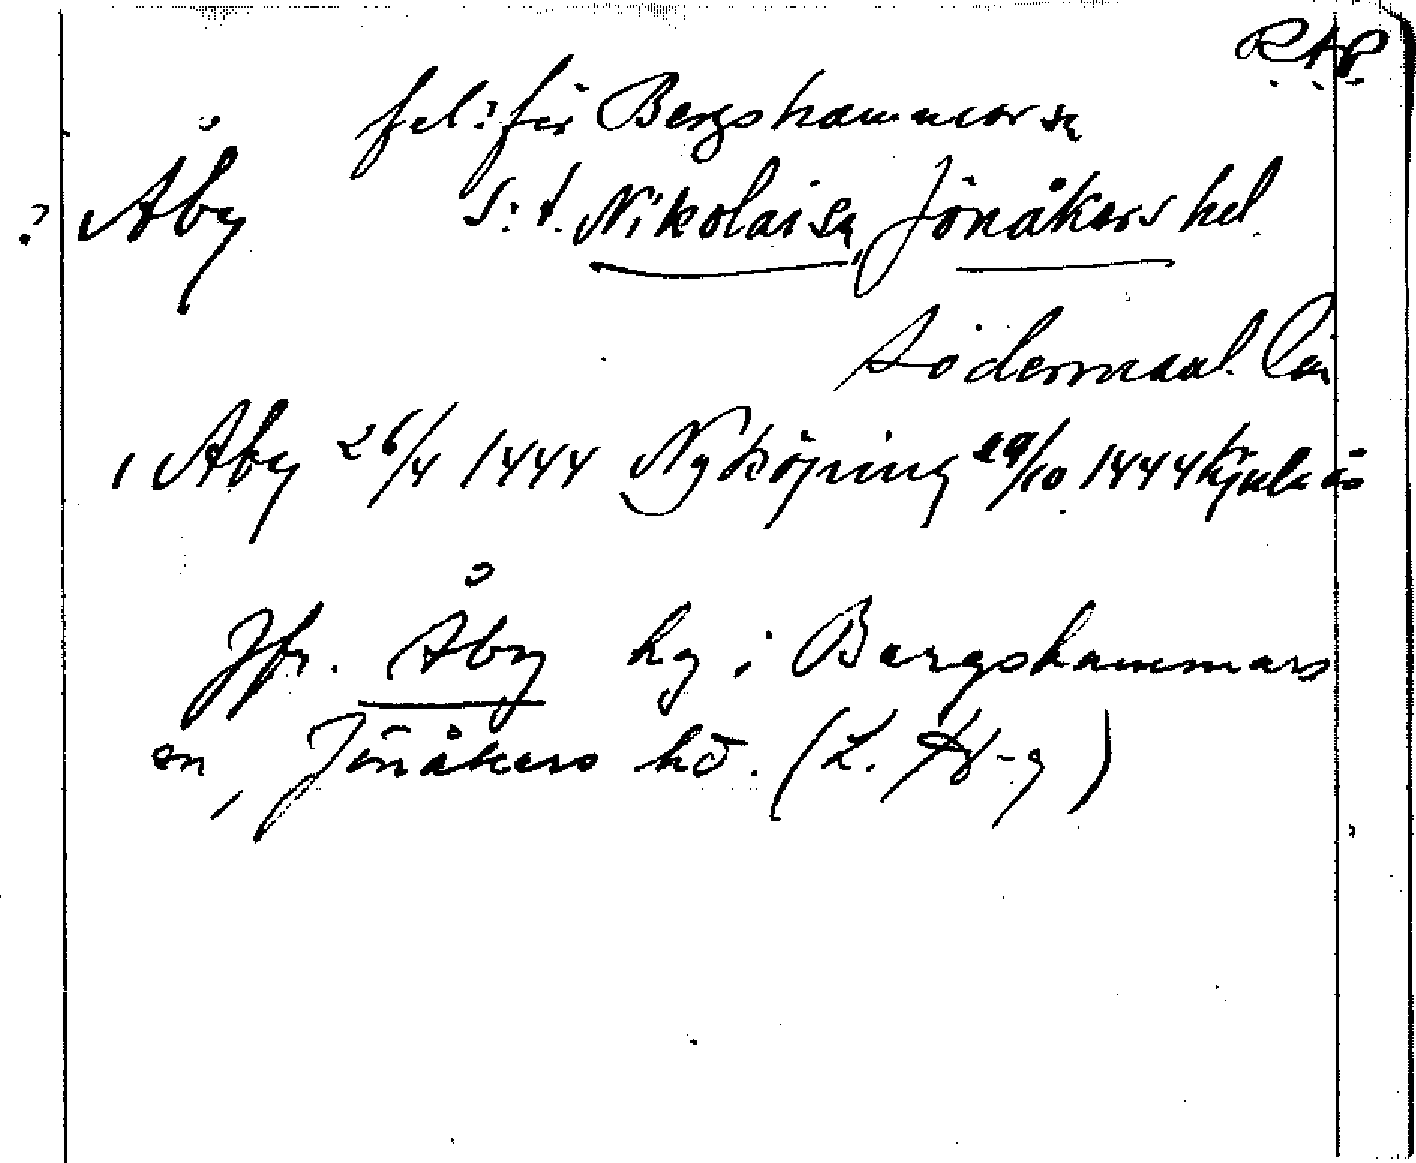 RAP.
fel? för Bergshammar sn
? Åby S:t. Nikolai sn, Jönåkers hd.
Södermanl. län
i Aby 26/4 1444 Nyköping 29/10 1444
Jfr. Åby by i Bergshammars
sn, Jönåkers hd. (L. Hg)